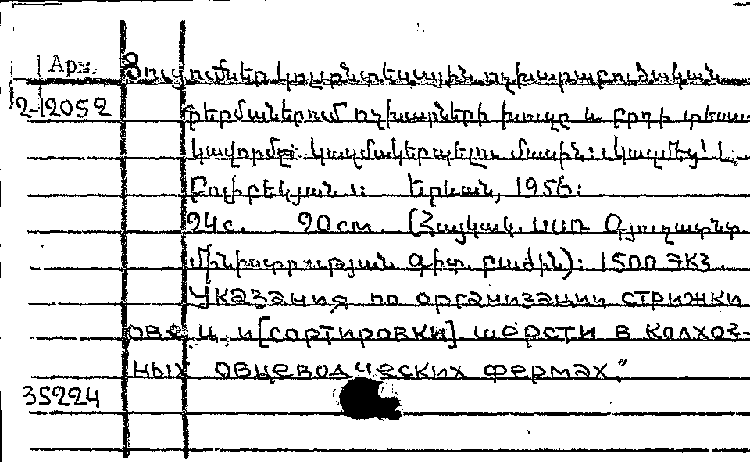 Арм.
2-12052
Ցուցումներ կոլտնտեսային ոչխարաբուծական
ֆերմաներում ոչխարների խուզը և բրդի տեսա
կավորմը կազմակերպելու մասին: Կազմեց՝ Լ.
Երևան, 1956:
24с. 20см. (Հայկակ. ՍՍՌ Գյուղատնտ
մինիստրության գիտ. բաժին): 1500 экз
Указания по организации стрижки
овец и [сортировки] шерсти в колхоз-
ных овцеводческих фермах."
35224